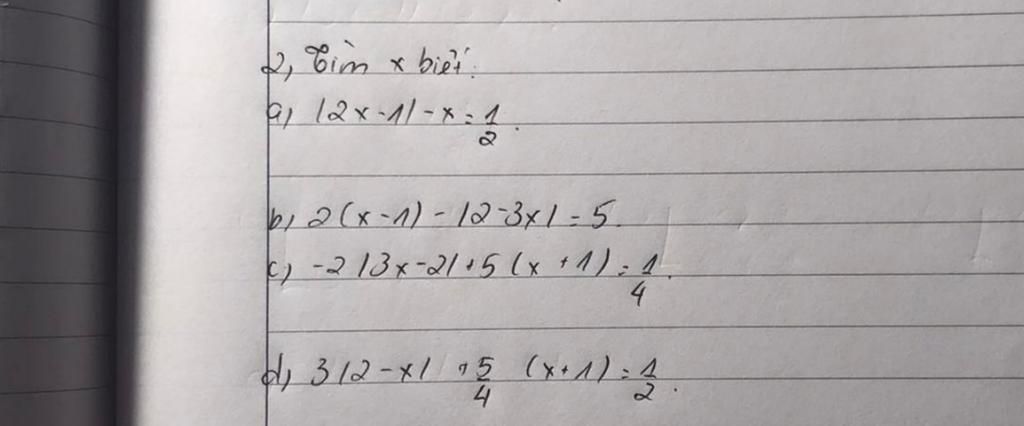 2, Tìm x biết:
a) |2x-1| - x = 1/2.
b) 2(x-1) - |2-3x| = 5.
c) -2|3x-2| + 5(x+1) = 1/4.
d) 3|2-x| + 5/4 (x+1) = 1/2.